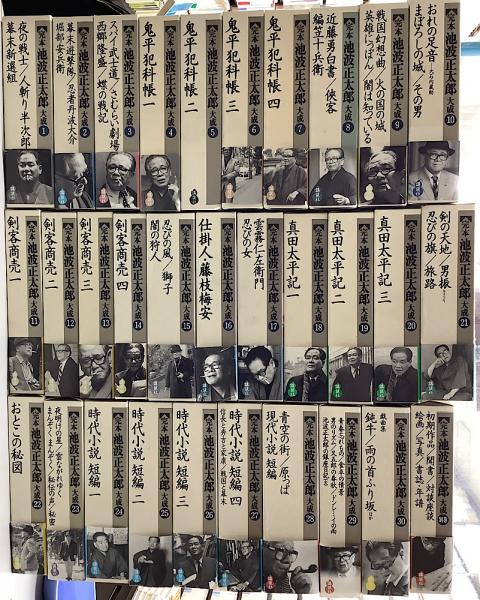 完本 池波正太郎 大成 1
夜の戦士/人斬り半次郎
幕末新選組
完本 池波正太郎 大成 2
幕末遊撃隊/忍者丹波大介
堀部安兵衛
完本 池波正太郎 大成 3
スパイ武士道/さむらい劇場
西郷隆盛/蝶の戦記
完本 池波正太郎 大成 4
鬼平犯科帳 一
完本 池波正太郎 大成 5
鬼平犯科帳 二
完本 池波正太郎 大成 6
鬼平犯科帳 三
完本 池波正太郎 大成 7
鬼平犯科帳 四
完本 池波正太郎 大成 8
近藤勇白書/俠客
編笠十兵衛
完本 池波正太郎 大成 9
戦国幻想曲/火の国の城
英雄にっぽん/闇は知っている
完本 池波正太郎 大成 10
おれの足音
まぼろしの城/その男
完本 池波正太郎 大成 11
剣客商売 一
完本 池波正太郎 大成 12
剣客商売 二
完本 池波正太郎 大成 13
剣客商売 三
完本 池波正太郎 大成 14
剣客商売 四
完本 池波正太郎 大成 15
忍びの風/獅子
闇の狩人
完本 池波正太郎 大成 16
仕掛人・藤枝梅安
完本 池波正太郎 大成 17
雲霧仁左衛門
忍びの女
完本 池波正太郎 大成 18
真田太平記 一
完本 池波正太郎 大成 19
真田太平記 二
完本 池波正太郎 大成 20
真田太平記 三
完本 池波正太郎 大成 21
剣の天地/男振
忍びの旗/旅路
完本 池波正太郎 大成 22
おとこの秘図
完本 池波正太郎 大成 23
夜明けの星/雲ながれゆく
まんぞくまんぞく/秘伝の声/秘密
完本 池波正太郎 大成 24
時代小説 短編 一
完本 池波正太郎 大成 25
時代小説 短編 二
完本 池波正太郎 大成 26
時代小説 短編 三
完本 池波正太郎 大成 27
時代小説 短編 四
完本 池波正太郎 大成 28
青空の街/原っぱ
現代小説 短編
完本 池波正太郎 大成 29
青春忘れもの/食卓の情景
完本 池波正太郎 大成 30
戯曲集
鈍牛/雨の首ふり坂 ほか
完本 池波正太郎 大成 別巻
初期作品/聞書/対談・座談
絵画/写真/書誌/年譜
講談社